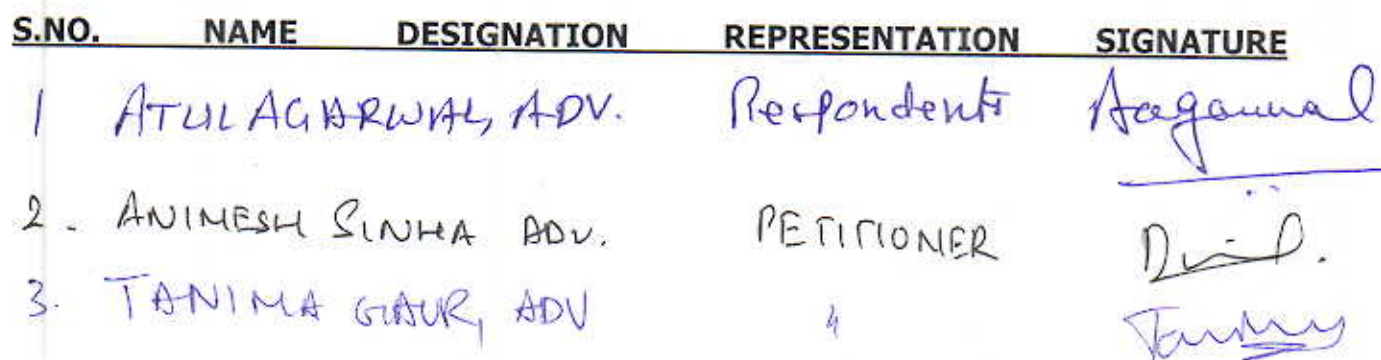 S.NO. NAME DESIGNATION REPRESENTATION SIGNATURE
1 ATUL AGARWAL, ADV. Respondents Aagarwal
2. ANIMESH SINHA ADV. PETITIONER
3. TANIMA GAUR, ADV "